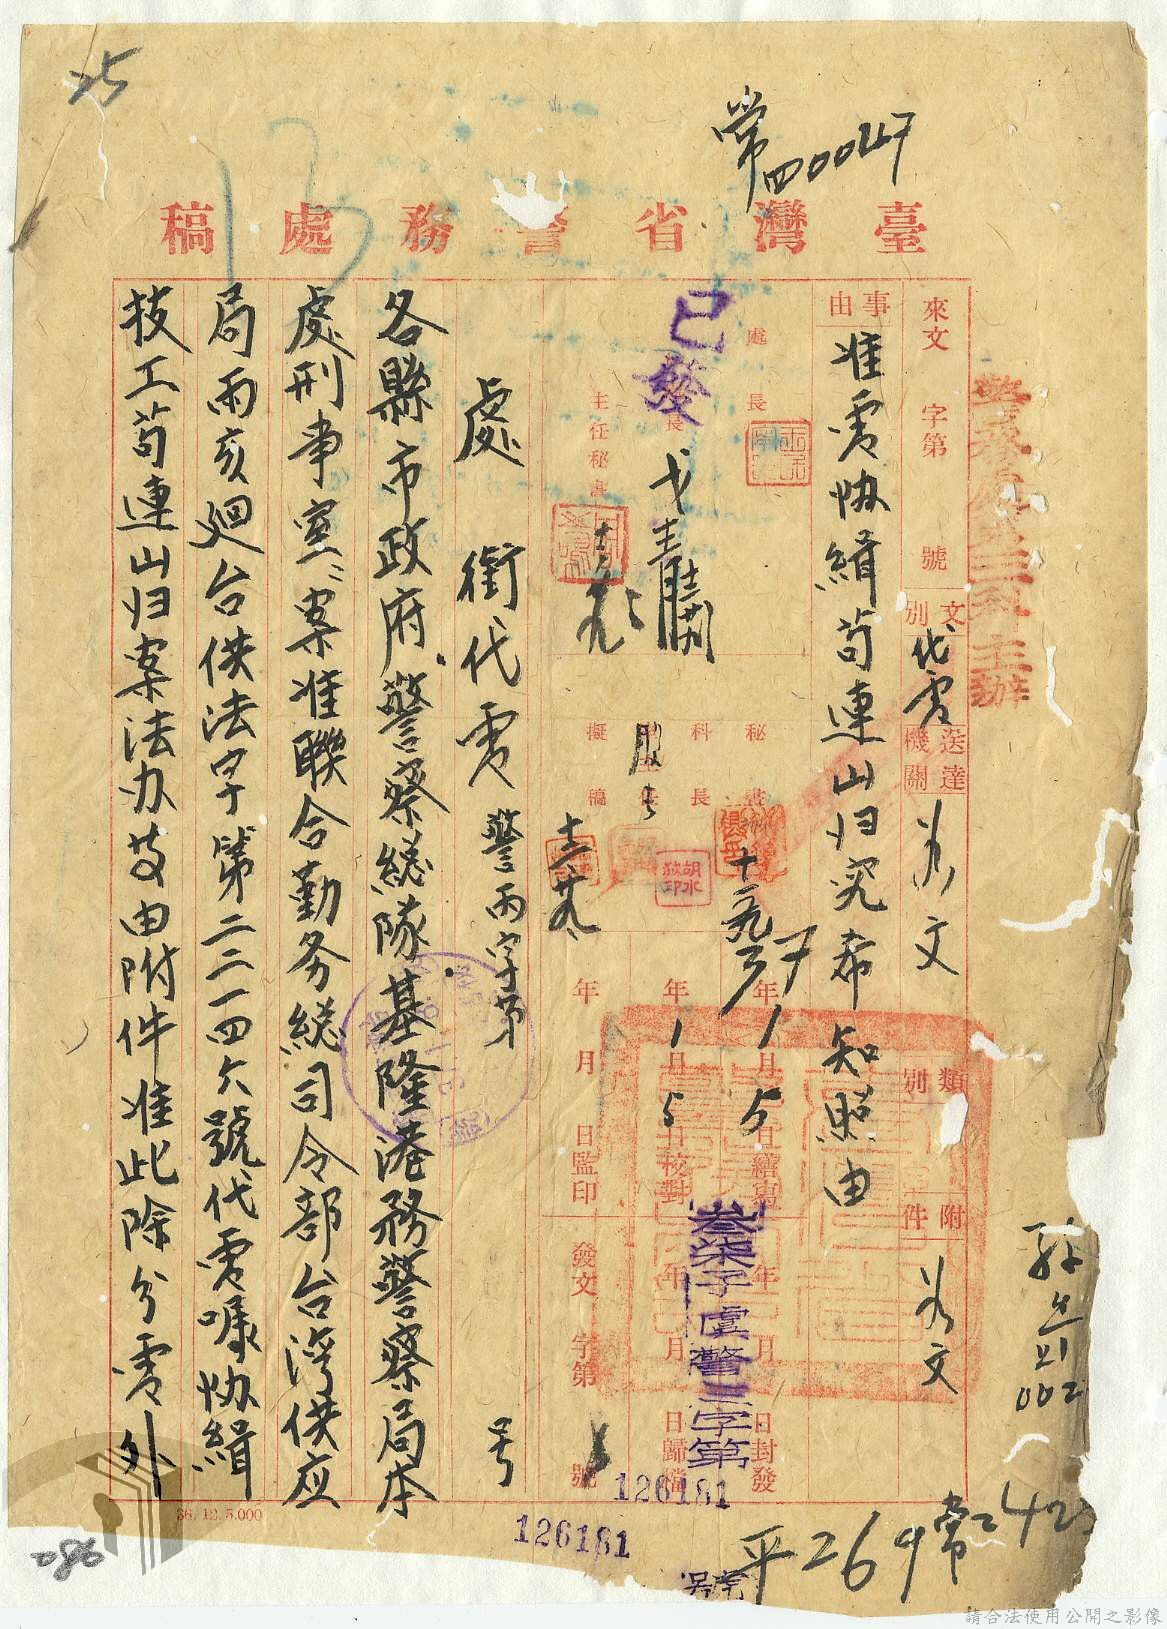 25
常四00047
臺灣省警務處稿
警務處第三科主辦
來文 字第 號
文別 代電
送達機關 如文
類別
附件 如文
事由 准電協緝苟連山归究希知照由
處長
已發
主任秘書
秘書
科長
擬稿
胡水
37年1月5日繕寫
年1月5日校對
年 月 日監印
年 月 日封發
年 月 日歸檔
發文 字第 號
叁柒子虞警三字第
126181
126181
號
處銜代電 警丙字第 号
各縣市政府、警察總隊、基隆港務警察局、本
處刑事室：案准聯合勤务總司令部台湾供应
局丙亥迴台供法字第二二一四六號代電囑協緝
技工苟連山归案法办等由附件准此除分電外
36.12.5.000
平269常2423
002
086
請合法使用公開之影像